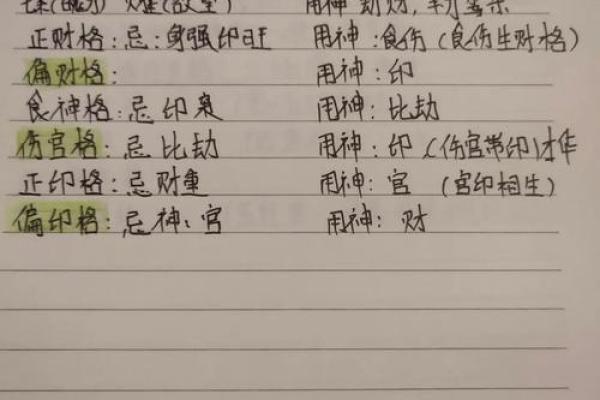 用神 劫财,
正财格:忌:身强印旺 用神:食伤(食伤生财格)
偏财格: 用神:印
食神格:忌印枭 用神:比劫
伤官格:忌比劫 用神:印(伤官带印)才
正印格:忌财重 用神:官 (官印相生)
偏印格:忌神:官 用神:财